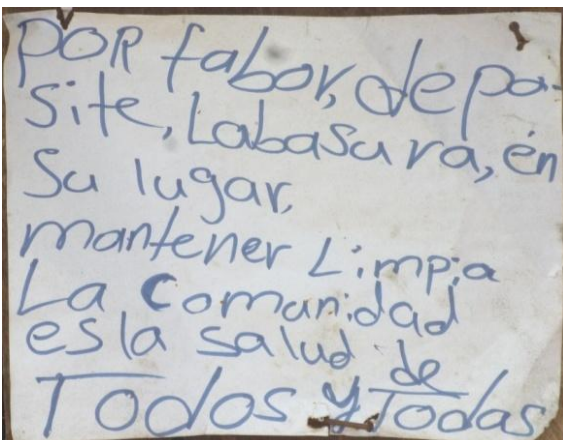 POR fabor, depo-
site, Labasura, en
Su lugar,
mantener Limpia
La Comunidad
es la salud de
Todos y Todas